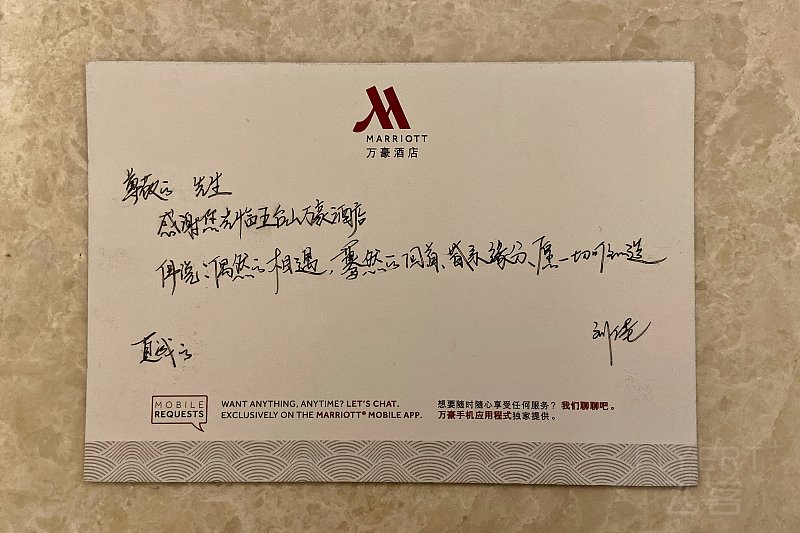 MARRIOTT
万豪酒店
尊敬的 先生
感谢您光临五台山万豪酒店
佛说:偶然的相遇,蓦然的回首、皆系缘分、愿一切
真诚的
刘
MOBILE
REQUESTS
WANT ANYTHING, ANYTIME? LET'S CHAT.
EXCLUSIVELY ON THE MARRIOTT® MOBILE APP.
想要随时随心享受任何服务?我们聊聊吧。
万豪手机应用程式独家提供。